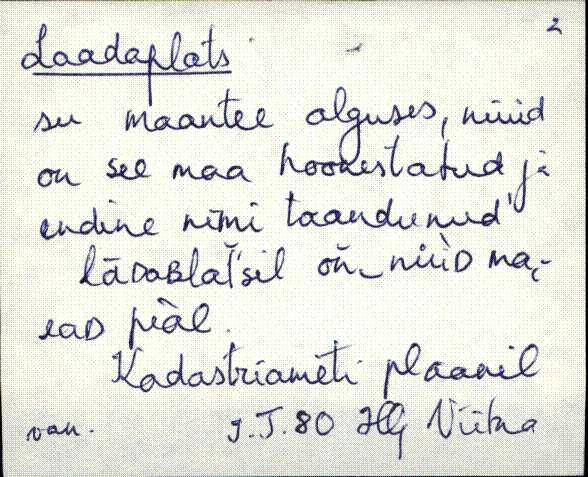 2
Laadaplats
su maantee alguses, nüüd
on see maa hoonestatud ja
endine nimi taandunud
lādaʙlat́sil oñ nüüᴅ ma-
eaᴅ piàl.
Kadastriameti plaanil
van. J.T.80 Hlj Viitna